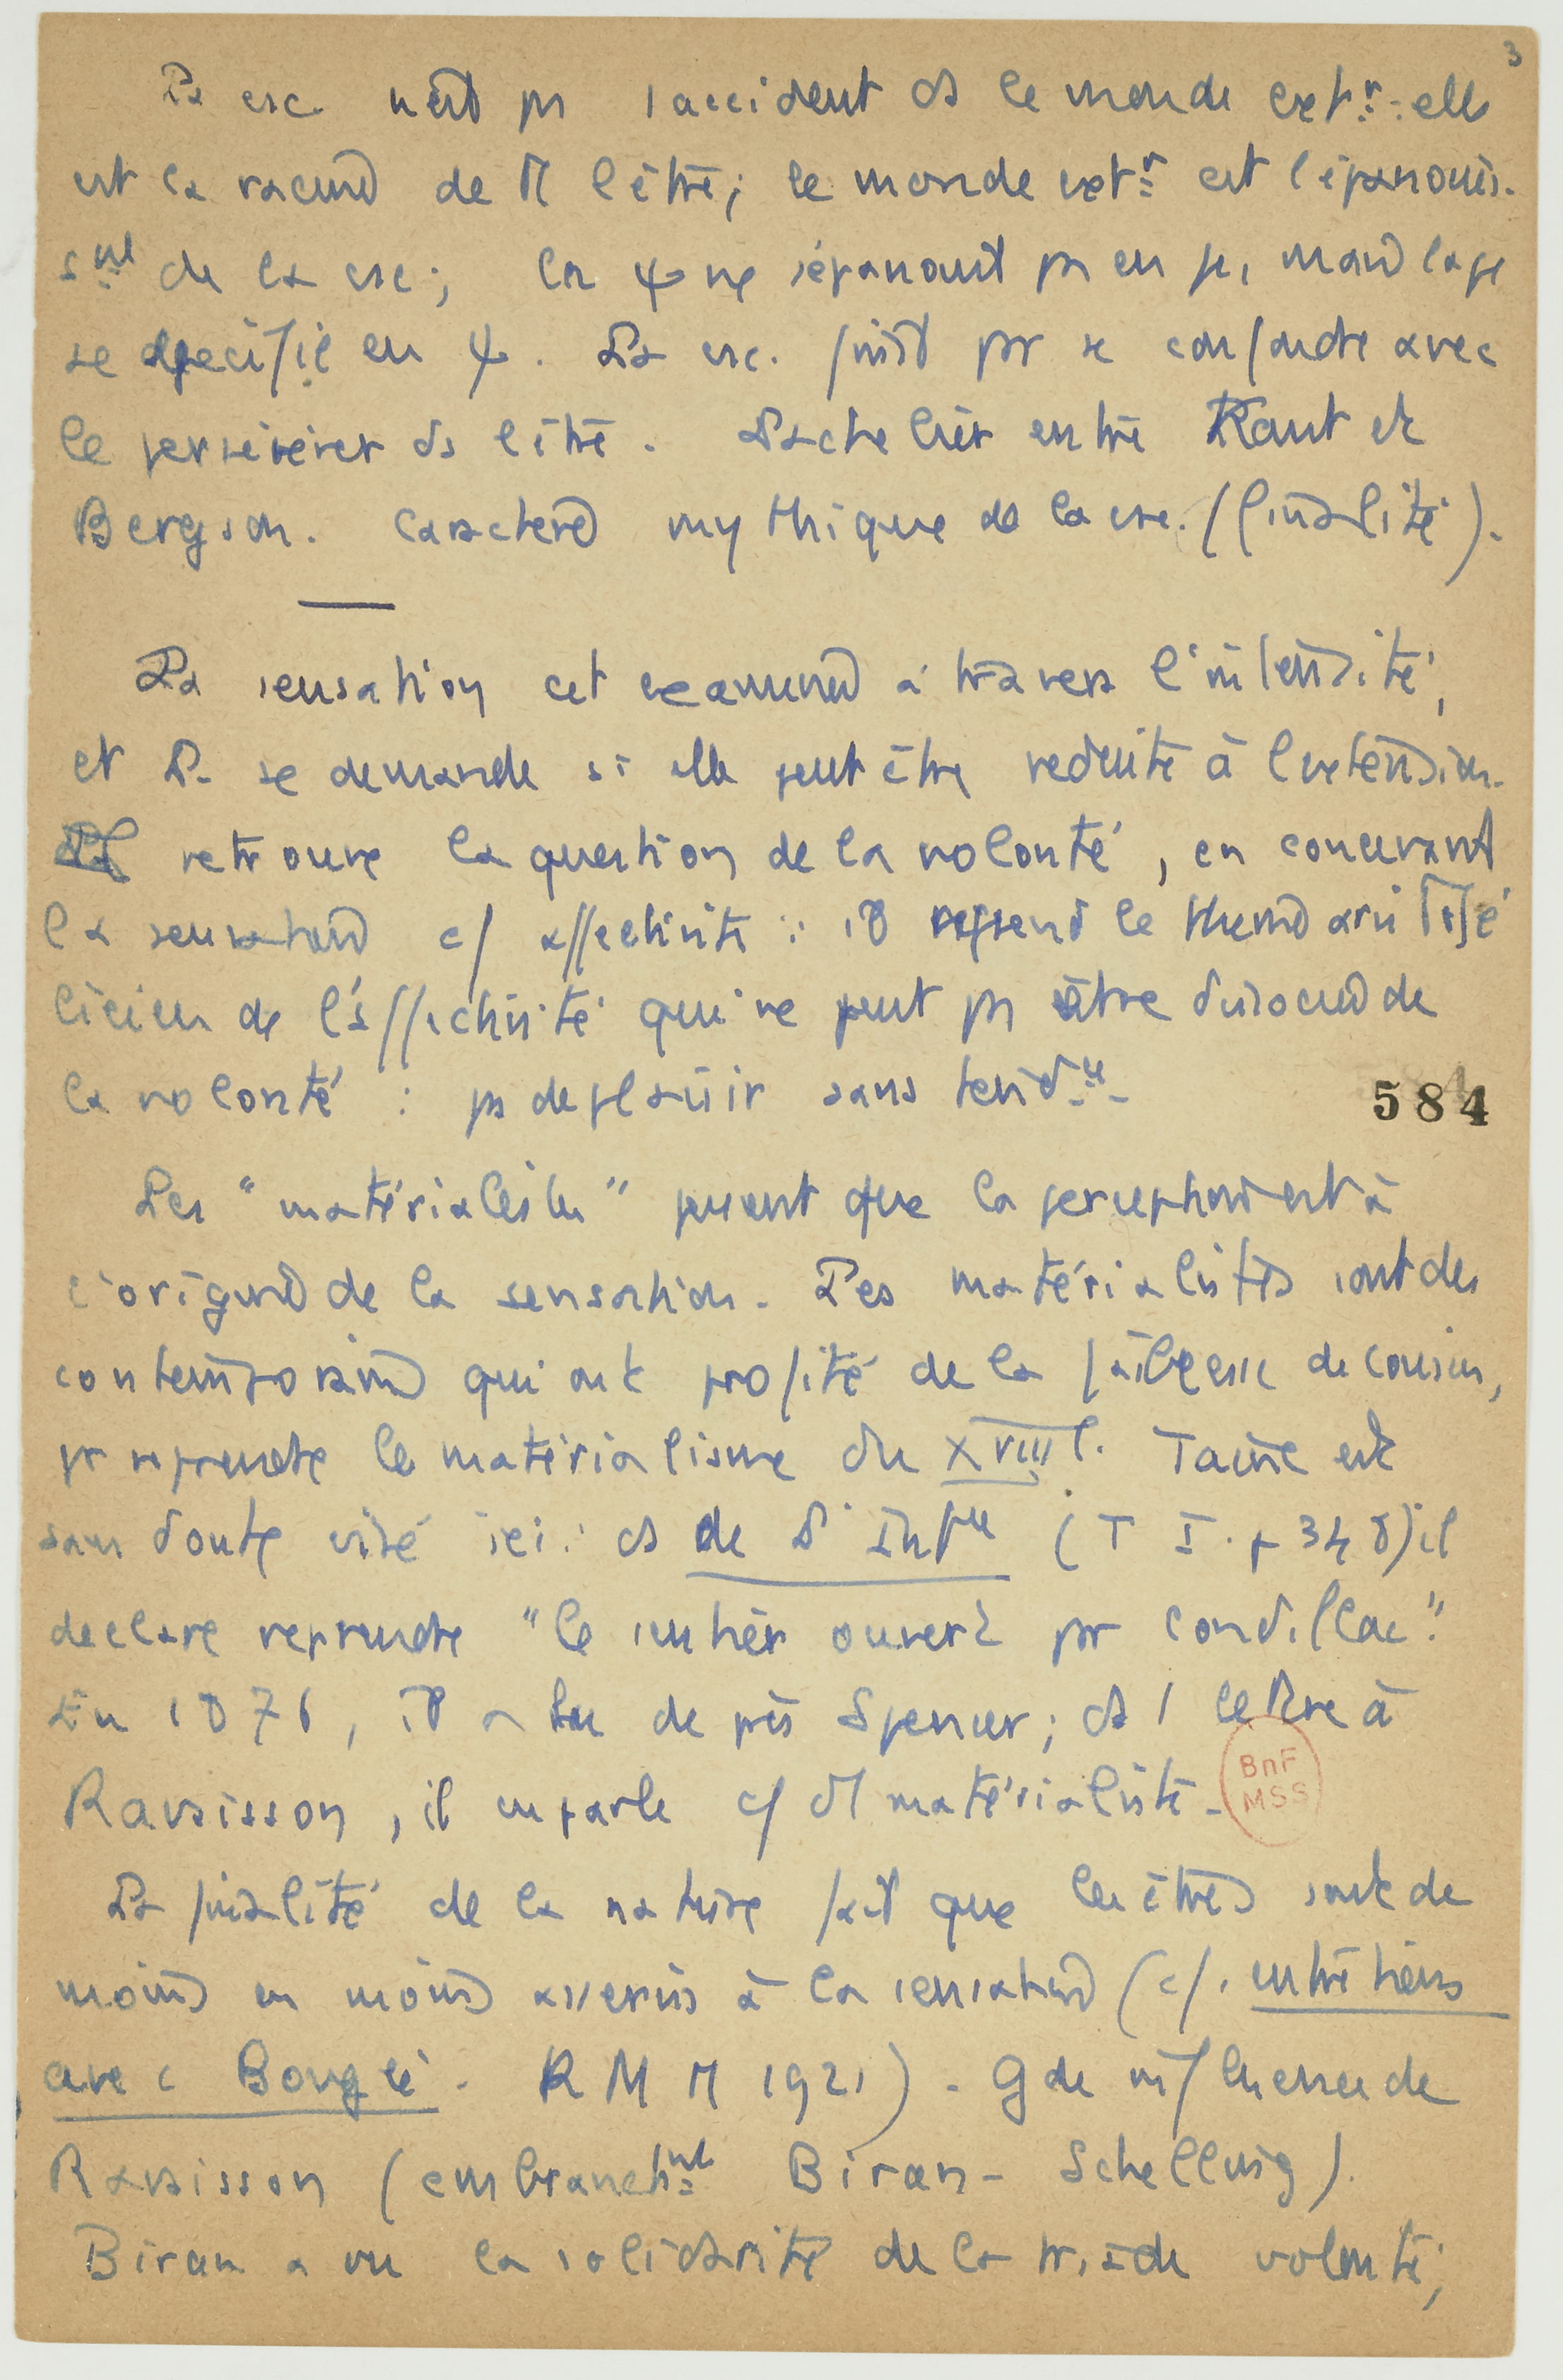 3
La csc. n'est pas 1 accident ds le monde extr : elle
est la racine de tt l'être ; le monde extr est l'épanouis-
smt de la csc ; la ψ ne s'épanouit pas en φ, mais la φ
se spécifie en ψ. La csc. finit par se confondre avec
le persévérer ds l'être. Lachelier entre Kant et
Bergson. Caractère mythique de la csc. (finalité).
La sensation est examinée à travers l'intensité,
et L. se demande si elle peut être réduite à l'extension.
Il retrouve la question de la volonté, en concevant
la sensation c/ affectivité : il reprend le thème aristoté
licien de l'affectivité qui ne peut pas être dissociée de
la volonté : pas de plaisir sans tendce.
584
Les "matérialistes" pensent que la perception est à
l'origine de la sensation. Les matérialistes sont des
contemporains qui ont profité de la faiblesse de Cousin,
pr reprendre le matérialisme du XVIII. Taine est
sans doute visé ici : ds de L'Intce (T I. p 348) il
déclare reprendre "le sentier ouvert par Condillac".
En 1876, il a lu de près Spencer ; ds 1 lettre à
Ravaisson, il en parle c/ d'1 matérialiste.
BnF
MSS
La finalité de la nature fait que les êtres sont de
moins en moins asservis à la sensation (cf. entretiens
avec Bouglé. R M M 1921). Gde influence de
Ravaisson (embranchmt Biran - Schelling).
Biran a vu la solidarité de la triade volonté,